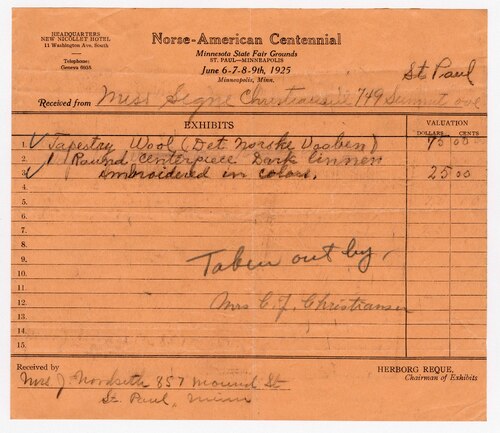 HEADQUARTERS
NEW NICOLLET HOTEL
11 Washington Ave. South
Telephone:
Geneva 6935
Norse-American Centennial
Minnesota State Fair Grounds
ST. PAUL—MINNEAPOLIS
June 6-7-8-9th, 1925
Minneapolis, Minn.
St Paul
Received from Miss Signe Christiansen 749 Summit ave
EXHIBITS
VALUATION
DOLLARS CENTS
1. Tapestry Wool (Det Norske Vaaben) 75 00
2. 1 Round Centerpiece Dark linnen
3. embroidered in colors. 25 00
4.
5.
6.
7.
8.
9.
10. Taken out by,
11.
12. Mrs C. J. Christiansen
13.
14.
15.
Received by
HERBORG REQUE,
Chairman of Exhibits
Mrs. J. Nordseth 857 Mound St
St. Paul, Minn